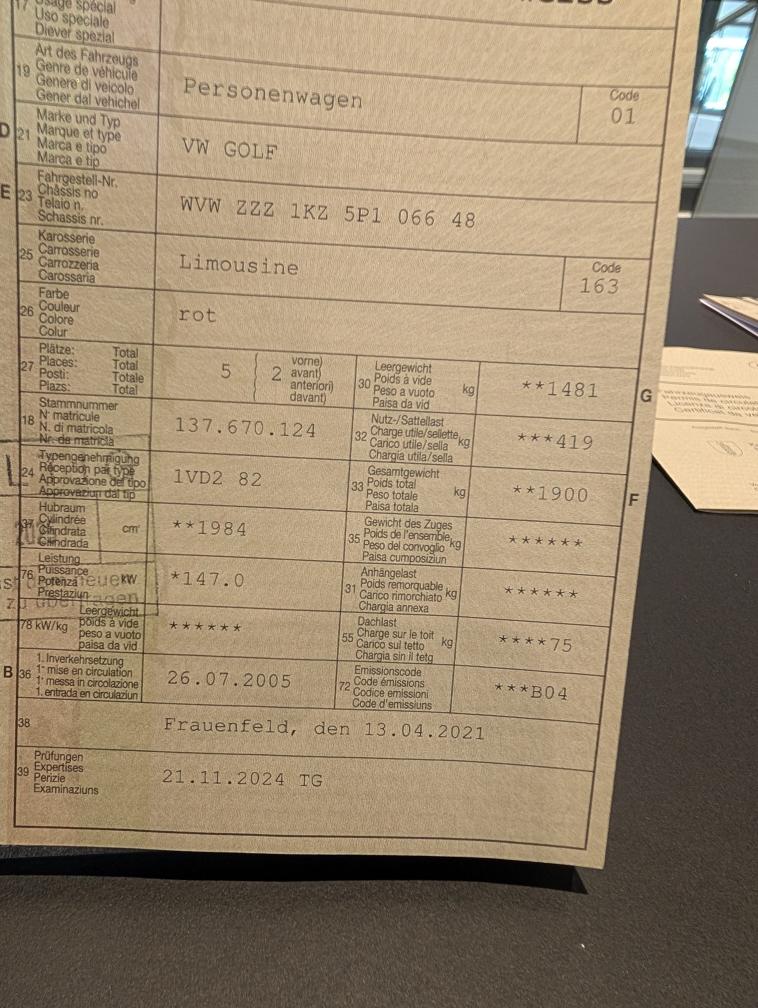 17 Usage spécial
Uso speciale
Diever spezial
Art des Fahrzeugs
19 Genre de véhicule
Genere di veicolo
Gener dal vehichel
Personenwagen
Code
01
Marke und Typ
D 21 Marque et type
Marca e tipo
Marca e tip
VW GOLF
Fahrgestell-Nr.
E 23 Châssis no
Telaio n.
Schassis nr.
WVW ZZZ 1KZ 5P1 066 48
Karosserie
25 Carrosserie
Carrozzeria
Carossaria
Limousine
Code
163
Farbe
26 Couleur
Colore
Colur
rot
Plätze: Total
27 Places: Total
Posti: Totale
Plazs: Total
5 2 vorne)
avant)
anteriori)
davant)
Leergewicht
30 Poids à vide kg
Peso a vuoto
Paisa da vid
**1481
G
Stammnummer
18 N° matricule
N. di matricola
Nr. da matricla
137.670.124
Nutz-/Sattellast
32 Charge utile/sellette kg
Carico utile/sella
Chargia utila/sella
***419
Typengenehmigung
24 Réception par type
Approvazione del tipo
Approvaziun dal tip
1VD2 82
Gesamtgewicht
33 Poids total kg
Peso totale
Paisa totala
**1900
F
Hubraum
37 Cylindrée cm³
Cilindrata
Cilindrada
**1984
Gewicht des Zuges
35 Poids de l'ensemble kg
Peso del convoglio
Paisa cumposiziun
******
Leistung
76 Puissance kW
Potenza
Prestaziun
*147.0
Anhängelast
31 Poids remorquable kg
Carico rimorchiato
Chargia annexa
******
Leergewicht
78 kW/kg poids à vide
peso a vuoto
paisa da vid
******
Dachlast
55 Charge sur le toit kg
Carico sul tetto
Chargia sin il tetg
****75
1. Inverkehrsetzung
B 36 1re mise en circulation
1a messa in circolazione
1. entrada en circulaziun
26.07.2005
Emissionscode
72 Code émissions
Codice emissioni
Code d'emissiuns
***B04
38 Frauenfeld, den 13.04.2021
Prüfungen
39 Expertises
Perizie
Examinaziuns
21.11.2024 TG